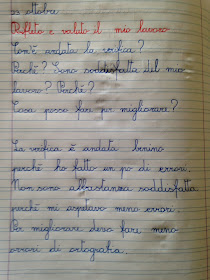 23 ottobre
Rifletto e valuto il mio lavoro
Com'è andata la verifica?
Perché? Sono soddisfatta del mio
lavoro? Perché?
Cosa posso fare per migliorare?
La verifica è andata benino
perché ho fatto un po di errori.
Non sono abbastanza soddisfatta
perché mi aspetavo meno errori.
Per migliorare devo fare meno
errori di ortografia.